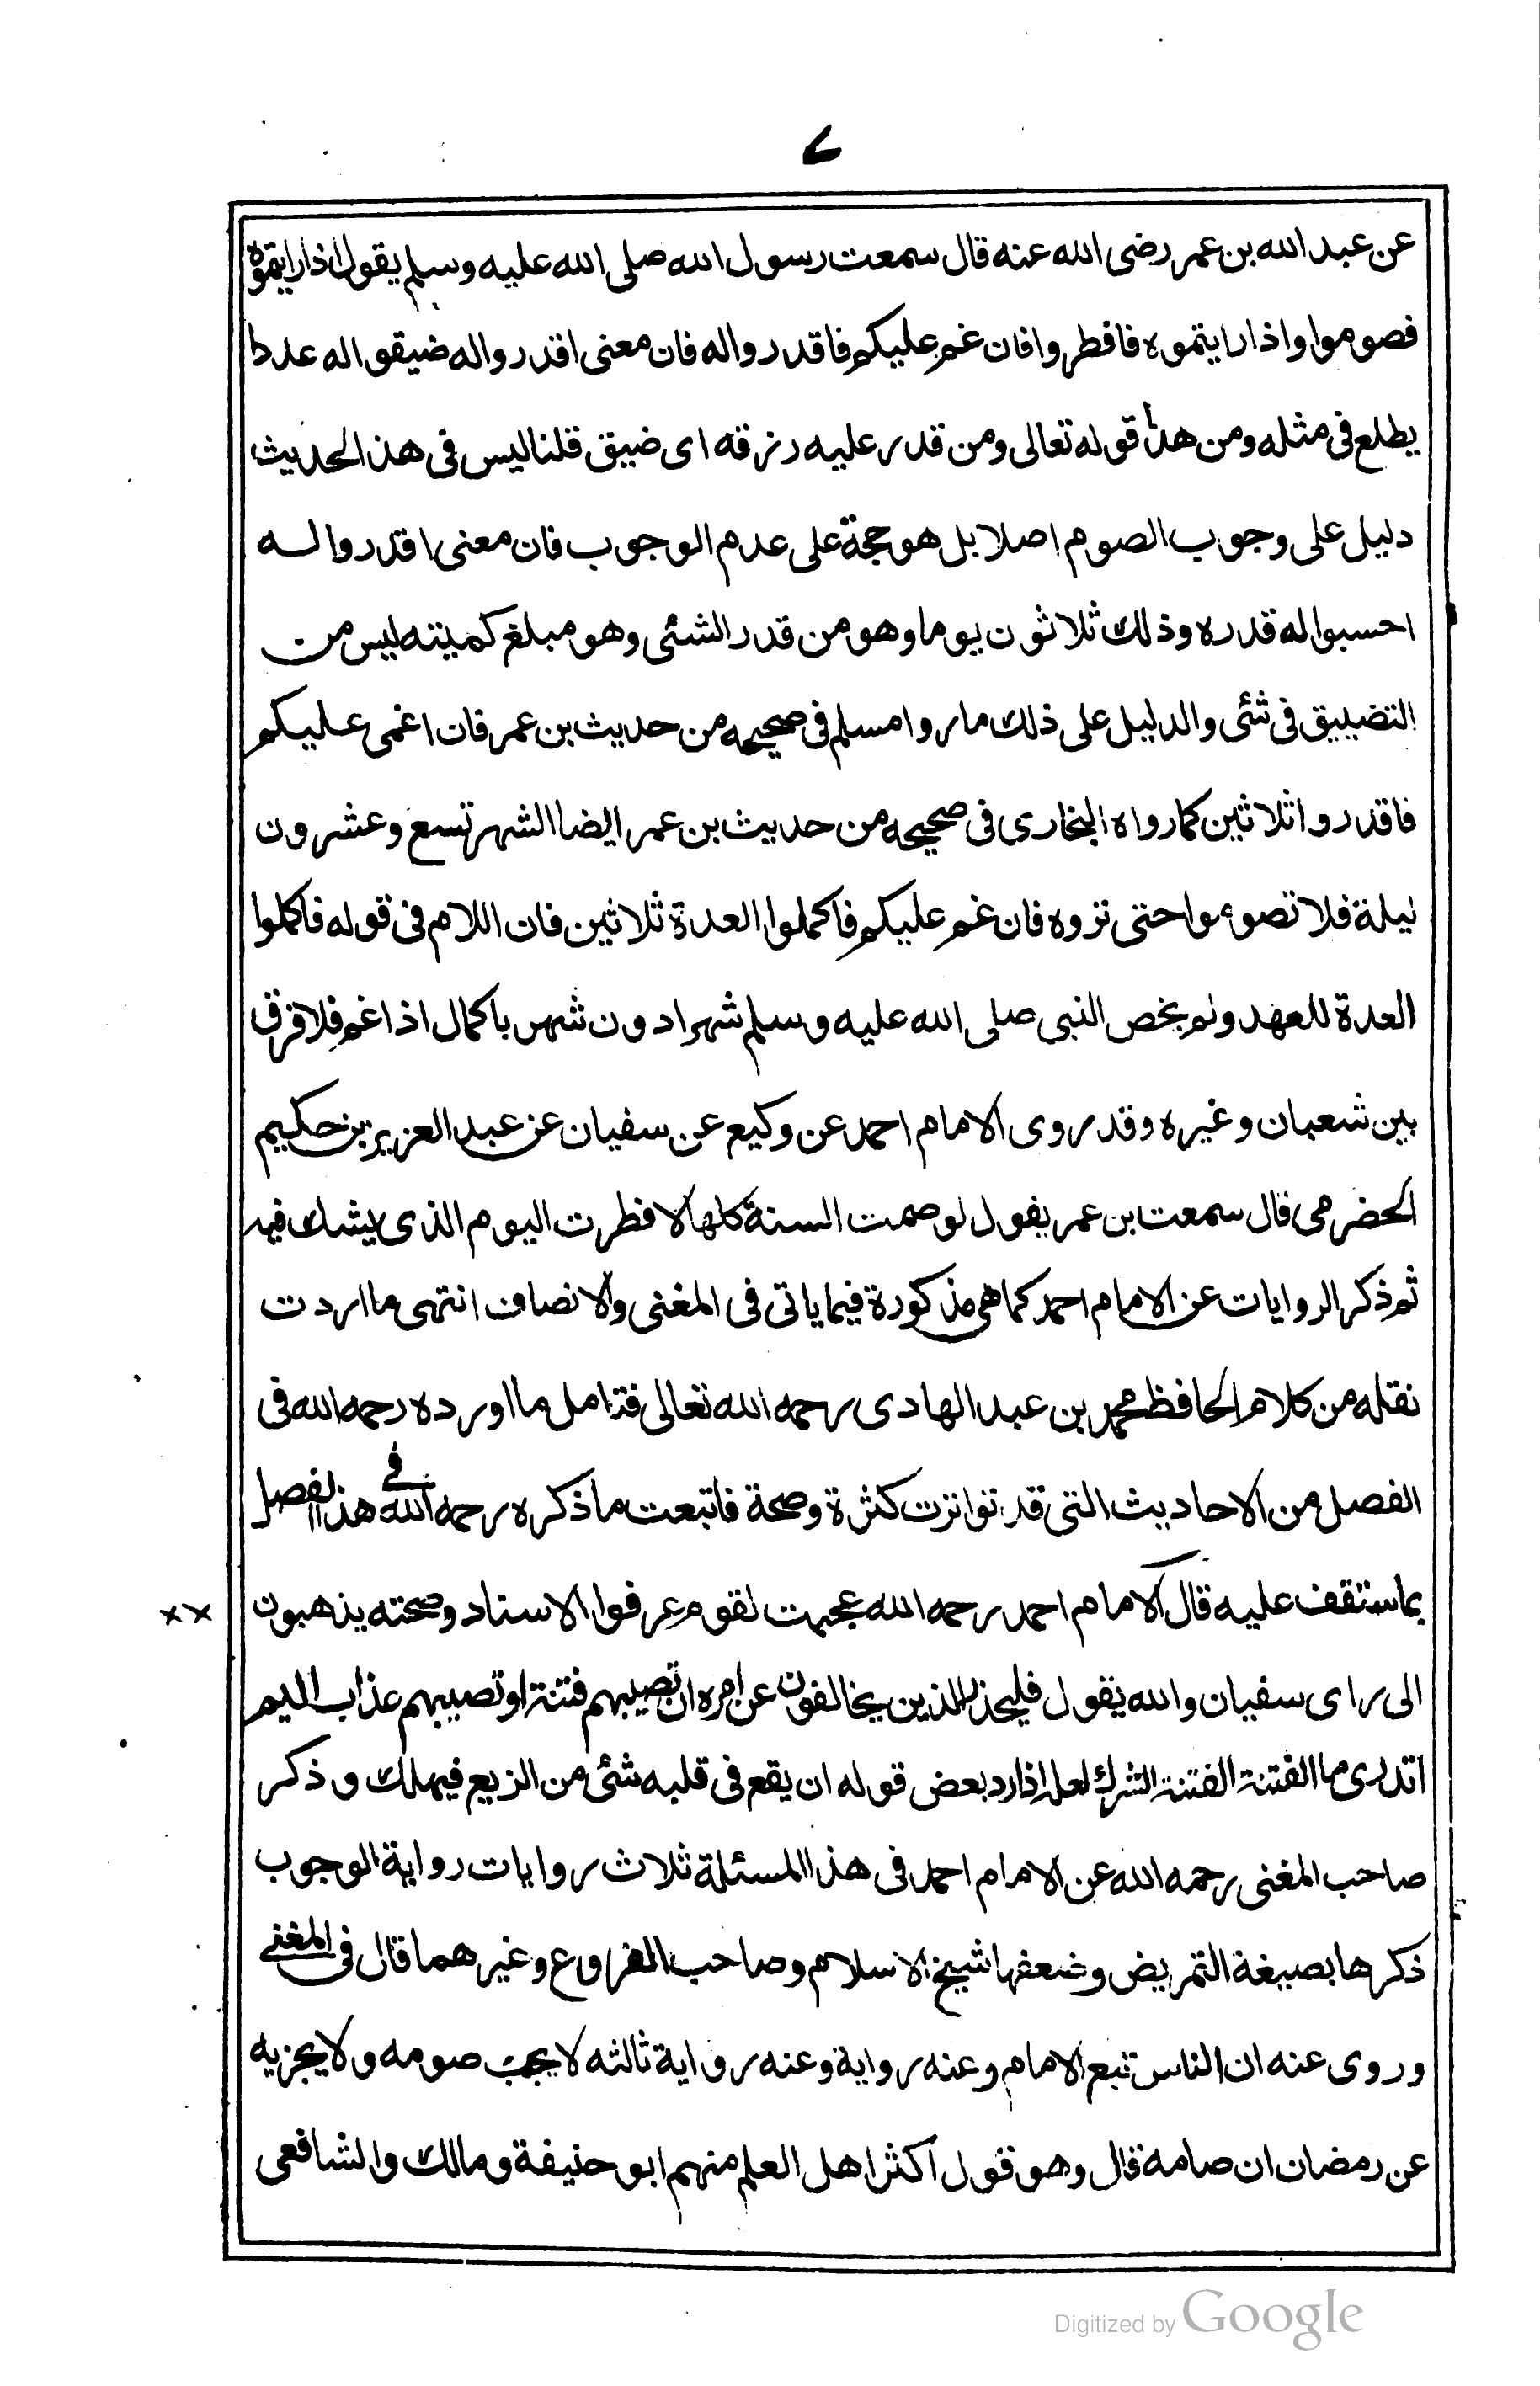 ٧
عن عبد الله بن عمر رضى الله عنه قال سمعت رسول الله صلى الله عليه وسلم يقول اذا رايتموه
فصوموا واذا رايتموه فافطروا فان غم عليكم فاقدرواله فان معنى اقدرواله ضيقوا له عددا
يطلع فى مثله ومن هذا قوله تعالى ومن قدر عليه رزقه اى ضيق قلنا ليس فى هذا الحديث
دليل على وجوب الصوم اصلا بل هو حجة على عدم الوجوب فان معنى اقدروا له
احسبوا له قدره وذلك ثلاثون يوما وهو من قدر الشئى وهو مبلغ كميته ليس من
التضييق فى شئى والدليل على ذلك ما روا مسلم فى صحيحه من حديث بن عمر فان اغمى عليكم
فاقدروا ثلاثين كما رواه البخارى فى صحيحه من حديث بن عمر ايضا الشهر تسع وعشرون
ليلة فلا تصوموا حتى تروه فان غم عليكم فاكملوا العدة ثلاثين فان اللام فى قوله فاكملوا
العدة للعهد ولم يخص النبى صلى الله عليه وسلم شهرا دون شهر باكمال اذا غم فلا فرق
بين شعبان وغيره وقد روى الامام احمد عن وكيع عن سفيان عن عبد العزيز بن حكيم
الحضرمى قال سمعت بن عمر يقول لو صمت السنة كلها لافطرت اليوم الذى يشك فيه
ثم ذكر الروايات عن الامام احمد كما هى مذكورة فيما ياتى فى المغنى والانصاف انتهى ما اردت
نقله من كلام الحافظ محمد بن عبد الهادى رحمه الله تعالى فتامل ما اورده رحمه الله فى
الفصل من الاحاديث التى قد تواترت كثرة وصحة فاتبعت ما ذكره رحمه الله فى هذا الفصل
بما ستقف عليه قال الامام احمد رحمه الله عجبت لقوم عرفوا الاسناد وصحته يذهبون ××
الى راى سفيان والله يقول فليحذر الذين يخالفون عن امره ان تصيبهم فتنة او تصيبهم عذاب اليم
اتدرى ما الفتنة الفتنة الشرك لعله اذا رد بعض قوله ان يقع فى قلبه شئى من الزيع فيهلك وذكر
صاحب المغنى رحمه الله عن الامام احمد فى هذا المسئلة ثلاث روايات رواية الوجوب
ذكرها بصيغة التمريض وضعفها شيخ الاسلام وصاحب الفروع وغيرهما قال فى المغنى
وروى عنه ان الناس تبع الامام وعنه رواية وعنه رواية ثالثه لا يجب صومه ولا يجزيه
عن رمضان ان صامه قال وهو قول اكثر اهل العلم منهم ابو حنيفة ومالك والشافعى
Digitized by Google